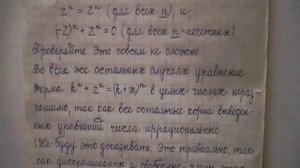 Zⁿ = Zⁿ (для всех n), и
(-Z)ⁿ + Zⁿ = 0 (для всех n-нечетных)
Проверяйте это совсем не сложно
Во всех же остальных случаях уравнение
Ферма kⁿ + zⁿ = (k + x)ⁿ в целых числах нераз-
решимо, так как все остальные корни выведен-
ных уравнений числа иррациональные
(Не буду это доказывать. Это тривиально, так
как дискриминант и свободные